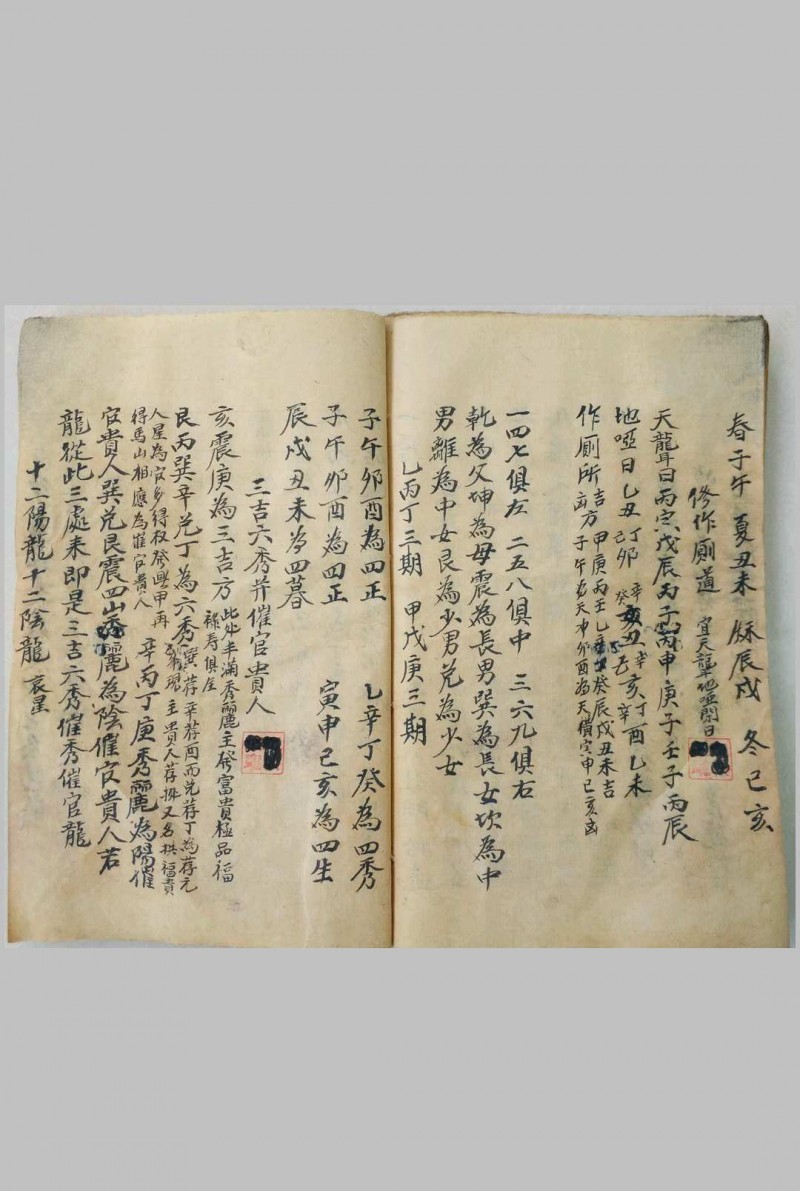 春子午 夏丑未 秌辰戌 冬巳亥
修作廁道 宜天聾地啞閉日
天聾日丙寅戊辰丙子丙申庚子壬子丙辰
地啞日乙丑丁卯己 辛亥丁酉乙未
作廁所吉方甲庚丙壬乙辛癸辰戌丑未吉
凶方子午為天中卯酉為天橫寅申巳亥凶
一四七俱左 二五八俱中 三六九俱右
乾為父坤為母震為長男巽為長女坎為中
男離為中女艮為少男兌為少女
乙丙丁三期 甲戊庚三期
子午卯酉為四正 乙辛丁癸為四秀
子午卯酉為四正 寅申巳亥為四生
辰戌丑未為四暮
三吉六秀并催官貴人
亥震庚為三吉方 此処丰滿秀麗主發富貴極品福
祿寿俱全
艮丙巽辛兌丁為六秀 巽荐辛荐酉而兌荐丁為荐元
主貴人荐㧞又名拱福貴
人星為官多得权
得馬山相應為催官貴人 辛丙丁庚秀麗為陽催
官貴人巽兌艮震四山秀麗為陰催官貴人若
龍從此三處來即是三吉六秀催秀催官龍
十二陽龍十二陰龍